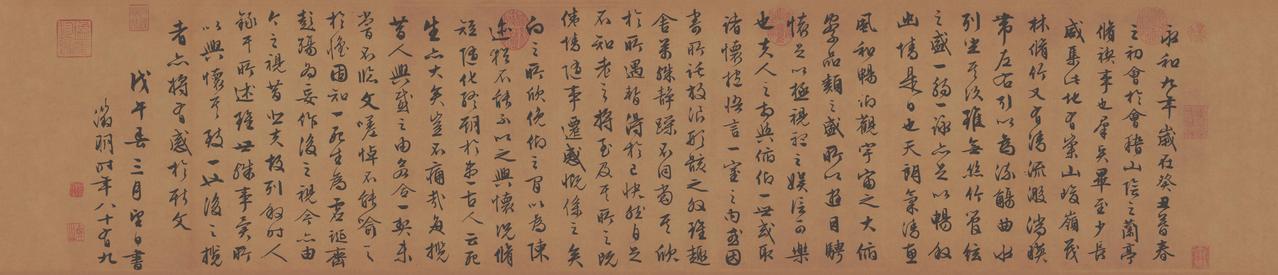 永和九年歲在癸丑莫春
之初會於會稽山陰之蘭亭
脩禊事也羣賢畢至少長
咸集此地有崇山峻嶺茂
林脩竹又有清流激湍暎
帶左右引以為流觴曲水
列坐其次雖無絲竹管絃
之盛一觴一詠亦足以暢敘
幽情是日也天朗氣清惠
風和暢仰觀宇宙之大俯
察品類之盛所以遊目騁
懷足以極視聽之娛信可樂
也夫人之相與俯仰一世或取
諸懷抱悟言一室之內或因
寄所託放浪形骸之外雖趣
舍萬殊靜躁不同當其欣
於所遇暫得於己快然自足
不知老之將至及其所之既
倦情隨事遷感慨係之矣
向之所欣俛仰之間以為陳
迹猶不能不以之興懷況脩
短隨化終期於盡古人云死
生亦大矣豈不痛哉每攬
昔人興感之由若合一契未
嘗不臨文嗟悼不能喻之
於懷固知一死生為虛誕齊
彭殤為妄作後之視今亦由
今之視昔悲夫故列敘時人
錄其所述雖世殊事異所
以興懷其致一也後之攬
者亦將有感於斯文
戊午春三月望日書
徵明時年八十有九